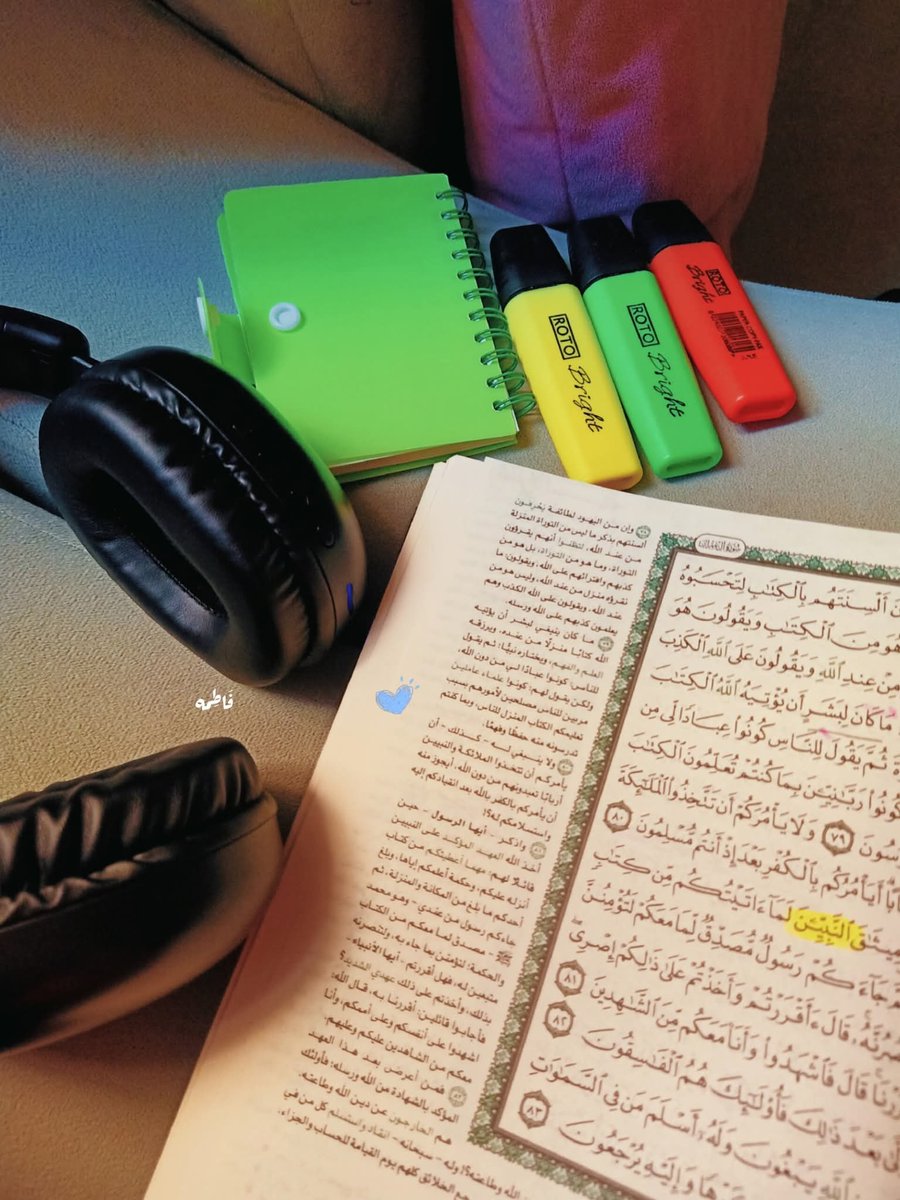 ROTO Bright
ROTO Bright
ROTO Bright
فاطمه
وإن من اليهود لطائفة يحرفون
ألسنتهم بذكر ما ليس من التوراة المنزلة
من عند الله، لتظنوا أنهم يقرؤون
التوراة، وما هو من التوراة، بل هو من
كذبهم وافترائهم على الله، ويقولون: ما
نقرؤه منزل من عند الله، وليس هو من
عند الله، ويقولون على الله الكذب وهم
يعلمون كذبهم على الله ورسله.
ما كان ينبغي لبشر أن يؤتيه
الله كتابًا منزلًا من عنده، ويرزقه
العلم والفهم، ويختاره نبيًّا؛ ثم يقول
للناس: كونوا عبادًا لي من دون الله،
ولكن يقول لهم: كونوا علماء عاملين
مربين للناس مصلحين لأمورهم بسبب
تعليمكم الكتاب المنزل للناس، وبما كنتم
تدرسونه منه حفظًا وفهمًا.
ولا ينبغي له - كذلك - أن
يأمركم أن تتخذوا الملائكة والنبيين
أربابًا تعبدونهم من دون الله، أيجوز منه
أن يأمركم بالكفر بالله بعد انقيادكم إليه
واستسلامكم له؟!
واذكر - أيها الرسول - حين
أخذ الله العهد المؤكد على النبيين
قائلًا لهم: مهما أعطيتكم من كتاب
أنزله عليكم، وحكمة أعلمكم إياها، وبلغ
أحدكم ما بلغ من المكانة والمنزلة، ثم
جاءكم رسول من عندي - وهو محمد
ﷺ - مصدق لما معكم من الكتاب
والحكمة؛ لتؤمنن بما جاء به، ولتنصرنه
متبعين له، فهل أقررتم - أيها الأنبياء-
بذلك، وأخذتم على ذلك عهدي الشديد؟
فأجابوا قائلين: أقررنا به، قال الله:
اشهدوا على أنفسكم وعلى أممكم، وأنا
معكم من الشاهدين عليكم وعليهم.
فمن أعرض بعد هذا العهد
المؤكد بالشهادة من الله ورسله؛ فأولئك
هم الخارجون عن دين الله وطاعته.
الله وطاعته؟! وله - سبحانه - انقاد واستسلم كل من في
الخلائق كلهم يوم القيامة للحساب والجزاء.
أَلْسِنَتَهُم بِٱلْكِتَٰبِ لِتَحْسَبُوهُ
هُوَ مِنَ ٱلْكِتَٰبِ وَيَقُولُونَ هُوَ
مِنْ عِندِ ٱللَّهِ وَيَقُولُونَ عَلَى ٱللَّهِ ٱلْكَذِبَ
مَا كَانَ لِبَشَرٍ أَن يُؤْتِيَهُ ٱللَّهُ ٱلْكِتَٰبَ
ثُمَّ يَقُولَ لِلنَّاسِ كُونُوا۟ عِبَادًا لِّى مِن
كُونُوا۟ رَبَّٰنِيِّـۧنَ بِمَا كُنتُمْ تُعَلِّمُونَ ٱلْكِتَٰبَ
٧٩ وَلَا يَأْمُرَكُمْ أَن تَتَّخِذُوا۟ ٱلْمَلَٰٓئِكَةَ
أَيَأْمُرُكُم بِٱلْكُفْرِ بَعْدَ إِذْ أَنتُم مُّسْلِمُونَ ٨٠
ٱلنَّبِيِّـۧنَ لَمَآ ءَاتَيْتُكُم مِّن كِتَٰبٍ
جَآءَكُمْ رَسُولٌ مُّصَدِّقٌ لِّمَا مَعَكُمْ لَتُؤْمِنُنَّ
قَالَ ءَأَقْرَرْتُمْ وَأَخَذْتُمْ عَلَىٰ ذَٰلِكُمْ إِصْرِى
قَالَ فَٱشْهَدُوا۟ وَأَنَا۠ مَعَكُم مِّنَ ٱلشَّٰهِدِينَ ٨١
بَعْدَ ذَٰلِكَ فَأُو۟لَٰٓئِكَ هُمُ ٱلْفَٰسِقُونَ ٨٢
يَبْغُونَ وَلَهُۥٓ أَسْلَمَ مَن فِى ٱلسَّمَٰوَٰتِ
وَإِلَيْهِ يُرْجَعُونَ ٨٣